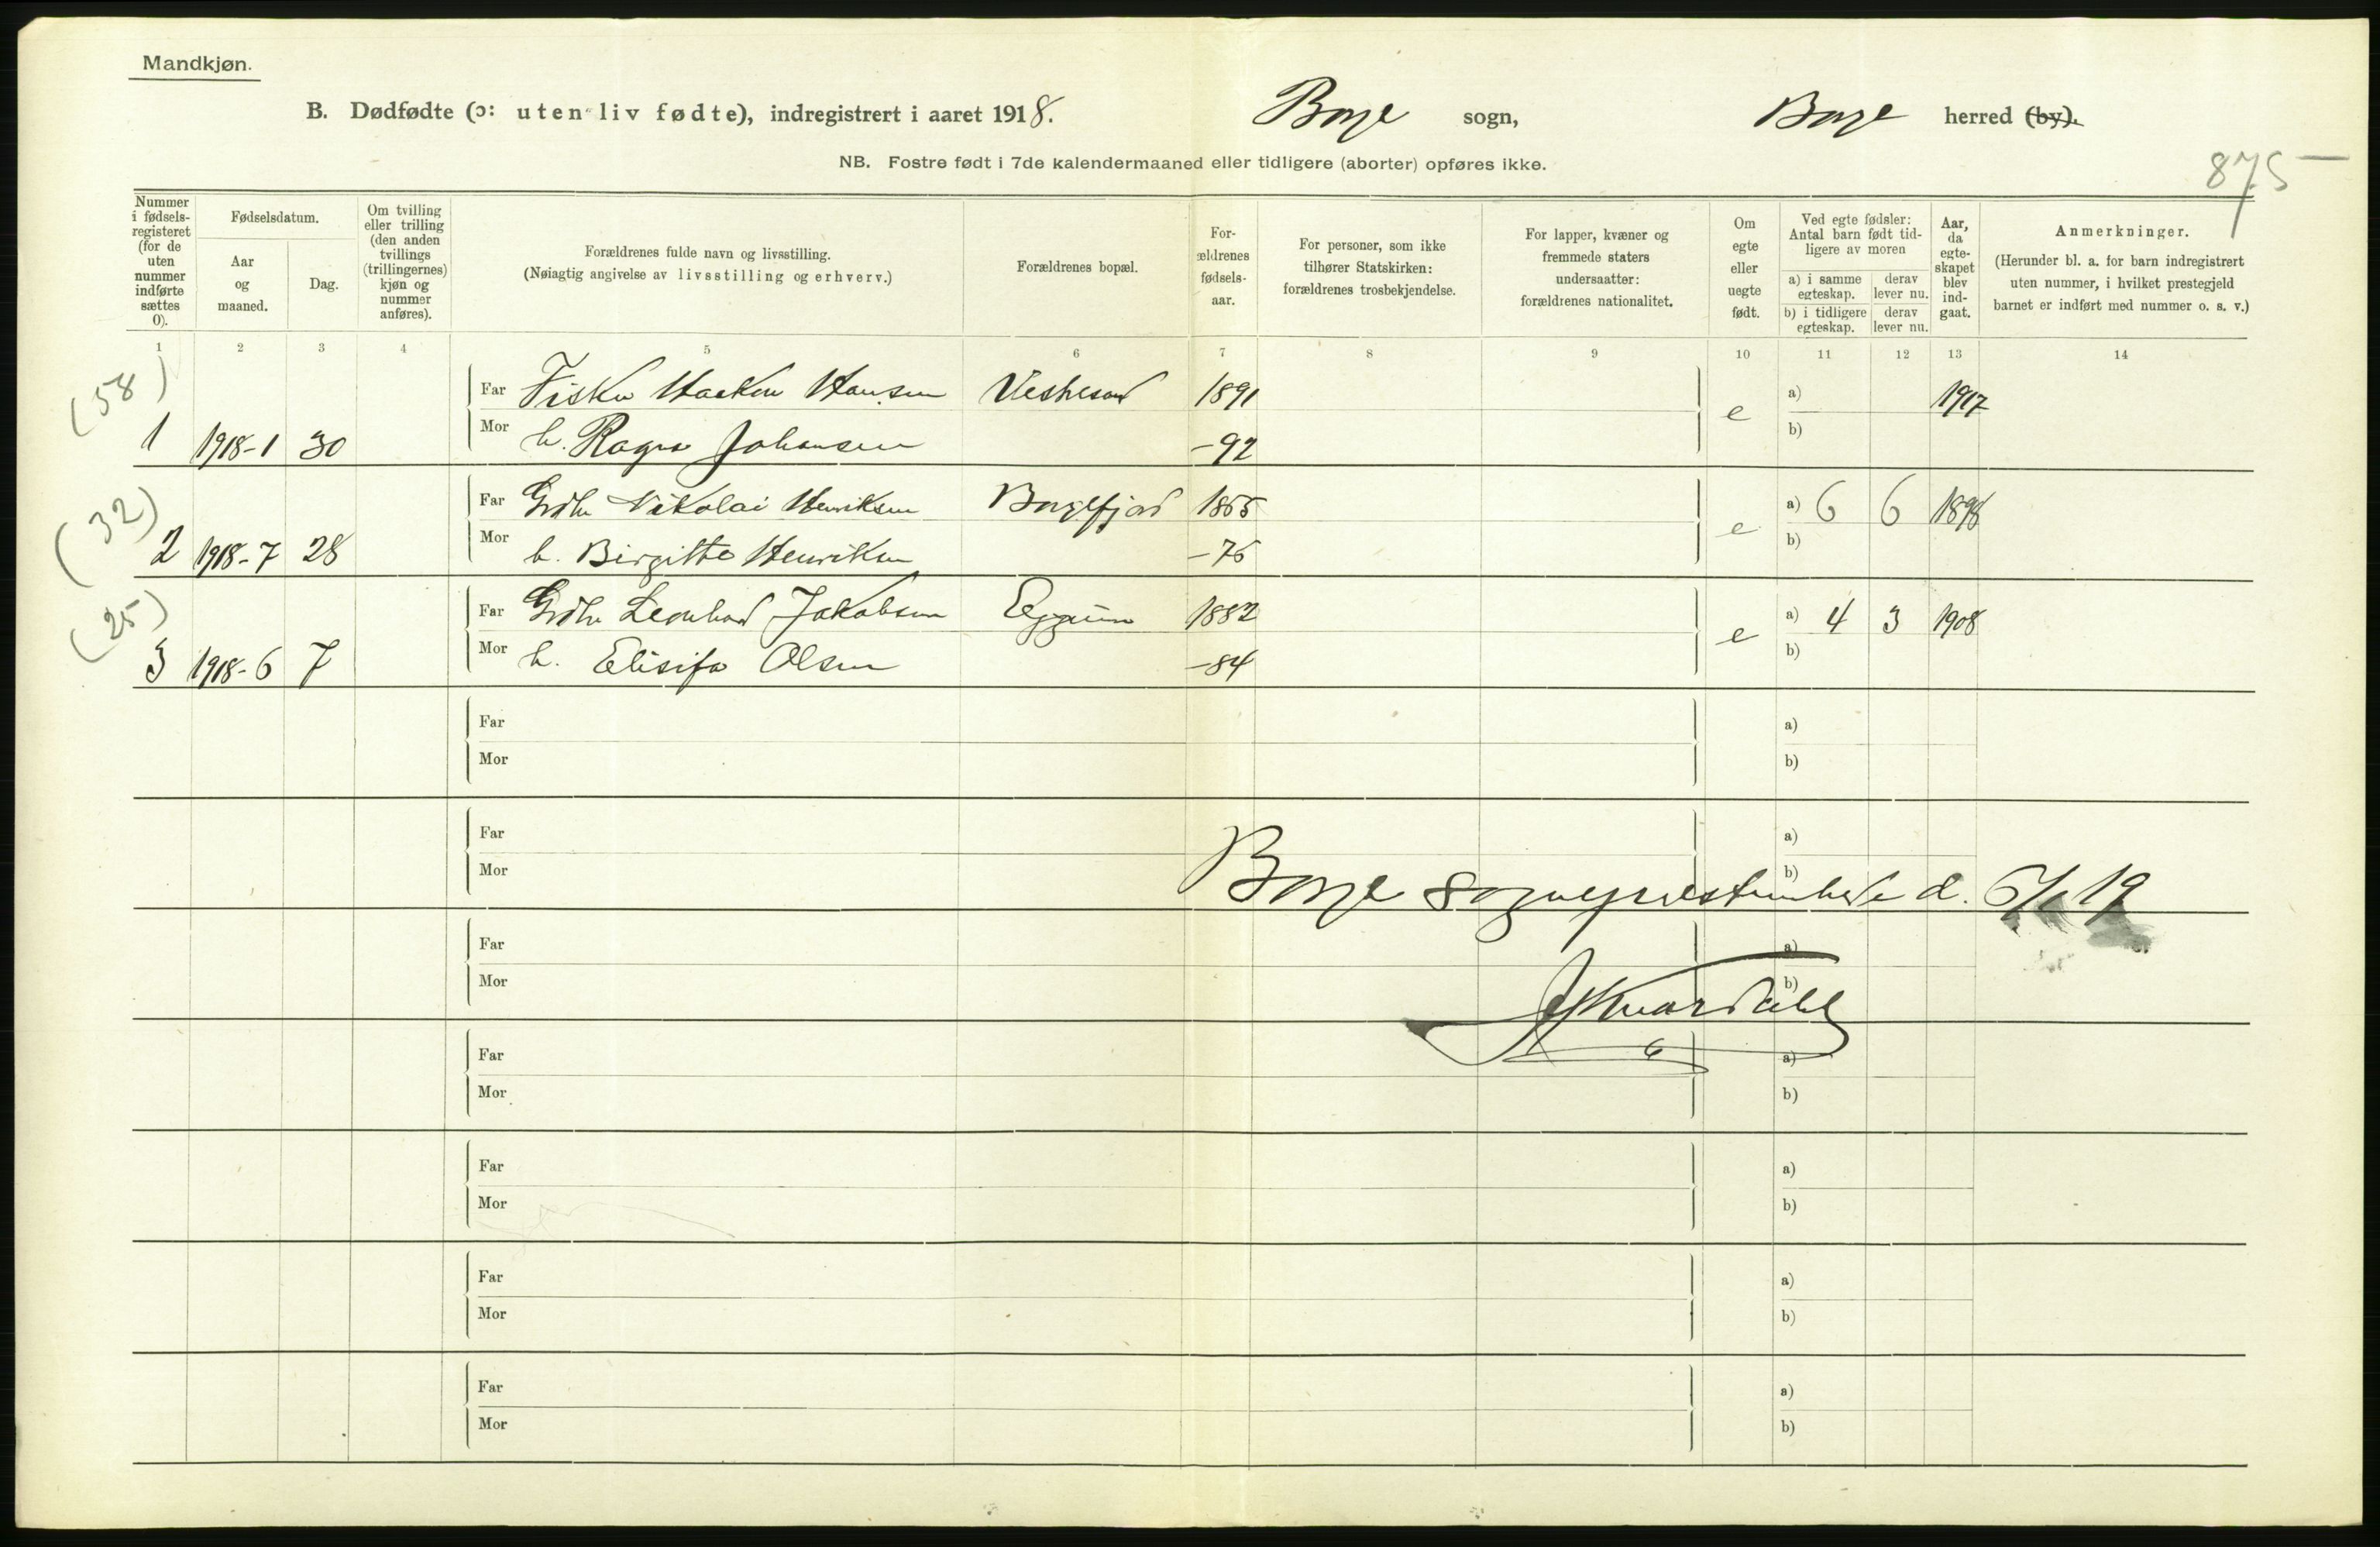 Mandkjøn.
B. Dødfødte (ɔ: uten liv fødte), indregistrert i aaret 1918. Borge sogn, Borge herred (by).
NB. Fostre født i 7de kalendermaaned eller tidligere (aborter) opføres ikke.
875
Nummer i fødsels-registeret (for de uten nummer indførte sættes 0).
Fødselsdatum.
Aar og maaned.
Dag.
Om tvilling eller trilling (den anden tvillings (trillingernes) kjøn og nummer anføres).
Forældrenes fulde navn og livsstilling.
(Nøiagtig angivelse av livsstilling og erhverv.)
Forældrenes bopæl.
For-ældrenes fødsels-aar.
For personer, som ikke tilhører Statskirken: forældrenes trosbekjendelse.
For lapper, kvæner og fremmede staters undersaatter: forældrenes nationalitet.
Om egte eller uegte født.
Ved egte fødsler: Antal barn født tid-ligere av moren
a) i samme egteskap. derav lever nu.
b) i tidligere egteskap. derav lever nu.
Aar, da egte-skapet blev ind-gaat.
Anmerkninger.
(Herunder bl. a. for barn indregistrert uten nummer, i hvilket prestegjeld barnet er indført med nummer o. s. v.)
1 2 3 4 5 6 7 8 9 10 11 12 13 14
(58)
Far Fisker Haakon Hansen 1891 e a) 1917
1 1918-1 30 Mor h. Ragna Johansen -92 b)
(32)
Far Grdbr Nikolai Henriksen Borgefjord 1865 e a) 6 6 1898
2 1918-7 28 Mor h. Birgitte Henriksen -75 b)
(25)
Far Grdbr Leonhard Jakobsen Eggum 1882 e a) 4 3 1908
3 1918-6 7 Mor h. Elisifa Olsen -84 b)
Far a)
Mor b)
Far a)
Mor b)
Borge sogneprestembede d. 6/1 19
Far a)
Mor b)
Far a)
Mor b)
Far a)
Mor b)
Far a)
Mor b)
Far a)
Mor b)